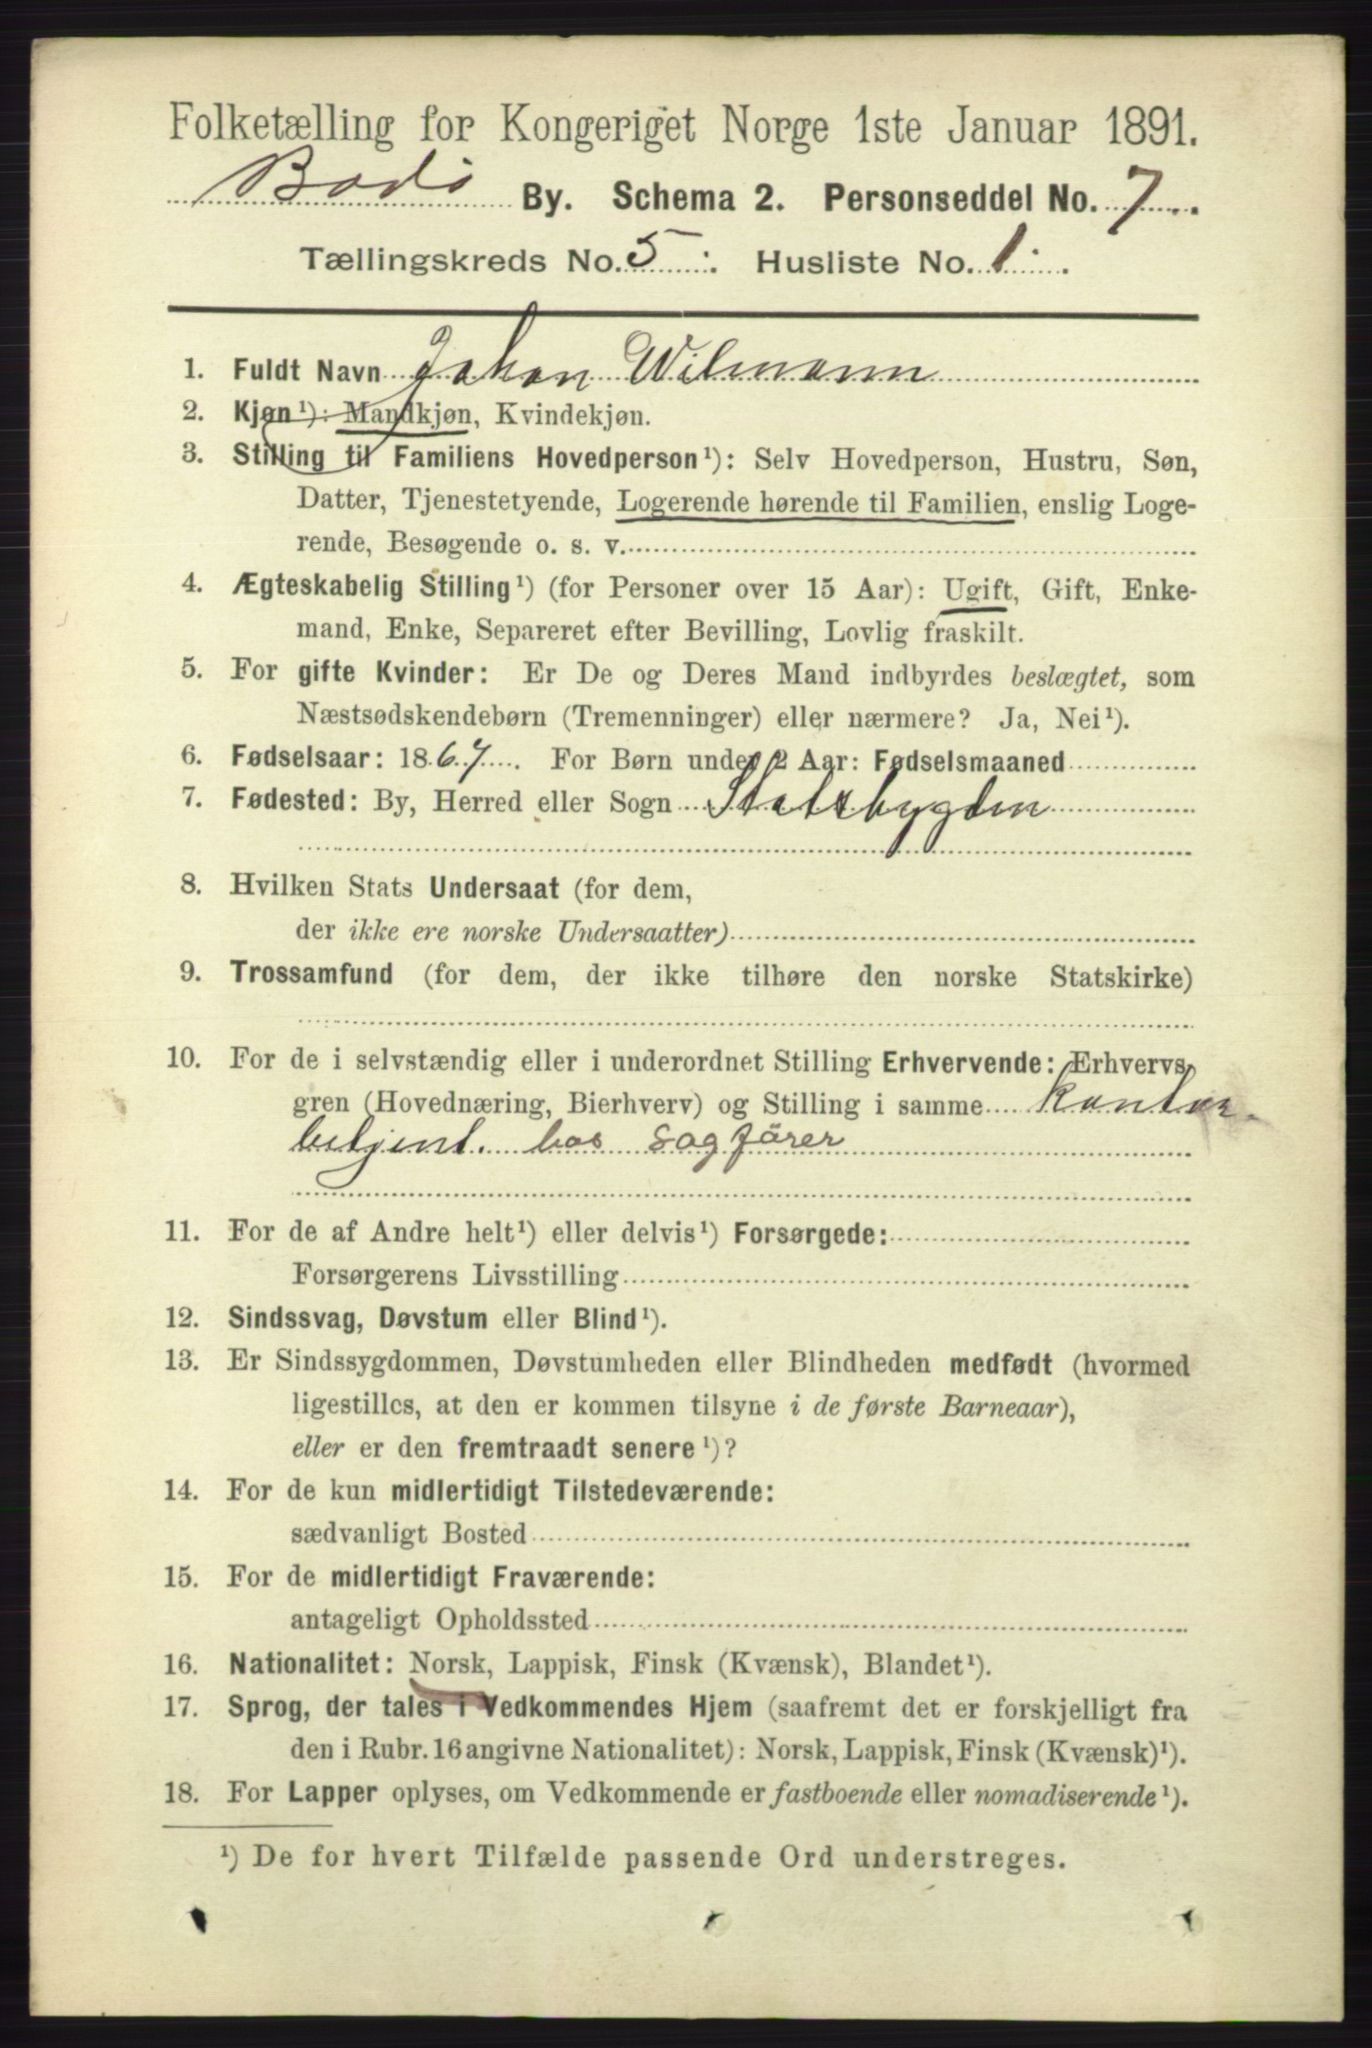 Folketælling for Kongeriget Norge 1ste Januar 1891.
Bodö By. Schema 2. Personseddel No. 7
Tællingskreds No. 5. Husliste No. 1.
1. Fuldt Navn Johan Wilmann
2. Kjøn¹): Mandkjøn, Kvindekjøn.
3. Stilling til Familiens Hovedperson¹): Selv Hovedperson, Hustru, Søn,
Datter, Tjenestetyende, Logerende hørende til Familien, enslig Loge-
rende, Besøgende o. s. v.
4. Ægteskabelig Stilling¹) (for Personer over 15 Aar): Ugift, Gift, Enke-
mand, Enke, Separeret efter Bevilling, Lovlig fraskilt.
5. For gifte Kvinder: Er De og Deres Mand indbyrdes beslægtet, som
Næstsødskendebørn (Tremenninger) eller nærmere? Ja, Nei¹).
6. Fødselsaar: 1867. For Børn under 2 Aar: Fødselsmaaned
7. Fødested: By, Herred eller Sogn Statsbygden
8. Hvilken Stats Undersaat (for dem,
der ikke ere norske Undersaatter)
9. Trossamfund (for dem, der ikke tilhøre den norske Statskirke)
10. For de i selvstændig eller i underordnet Stilling Erhvervende: Erhvervs-
gren (Hovednæring, Bierhverv) og Stilling i samme Kontor
betjent. hos Sagförer
11. For de af Andre helt¹) eller delvis¹) Forsørgede:
Forsørgerens Livsstilling
12. Sindssvag, Døvstum eller Blind¹).
13. Er Sindssygdommen, Døvstumheden eller Blindheden medfødt (hvormed
ligestilles, at den er kommen tilsyne i de første Barneaar),
eller er den fremtraadt senere¹)?
14. For de kun midlertidigt Tilstedeværende:
sædvanligt Bosted
15. For de midlertidigt Fraværende:
antageligt Opholdssted
16. Nationalitet: Norsk, Lappisk, Finsk (Kvænsk), Blandet¹).
17. Sprog, der tales i Vedkommendes Hjem (saafremt det er forskjelligt fra
den i Rubr. 16 angivne Nationalitet): Norsk, Lappisk, Finsk (Kvænsk)¹).
18. For Lapper oplyses, om Vedkommende er fastboende eller nomadiserende¹).
¹) De for hvert Tilfælde passende Ord understreges.